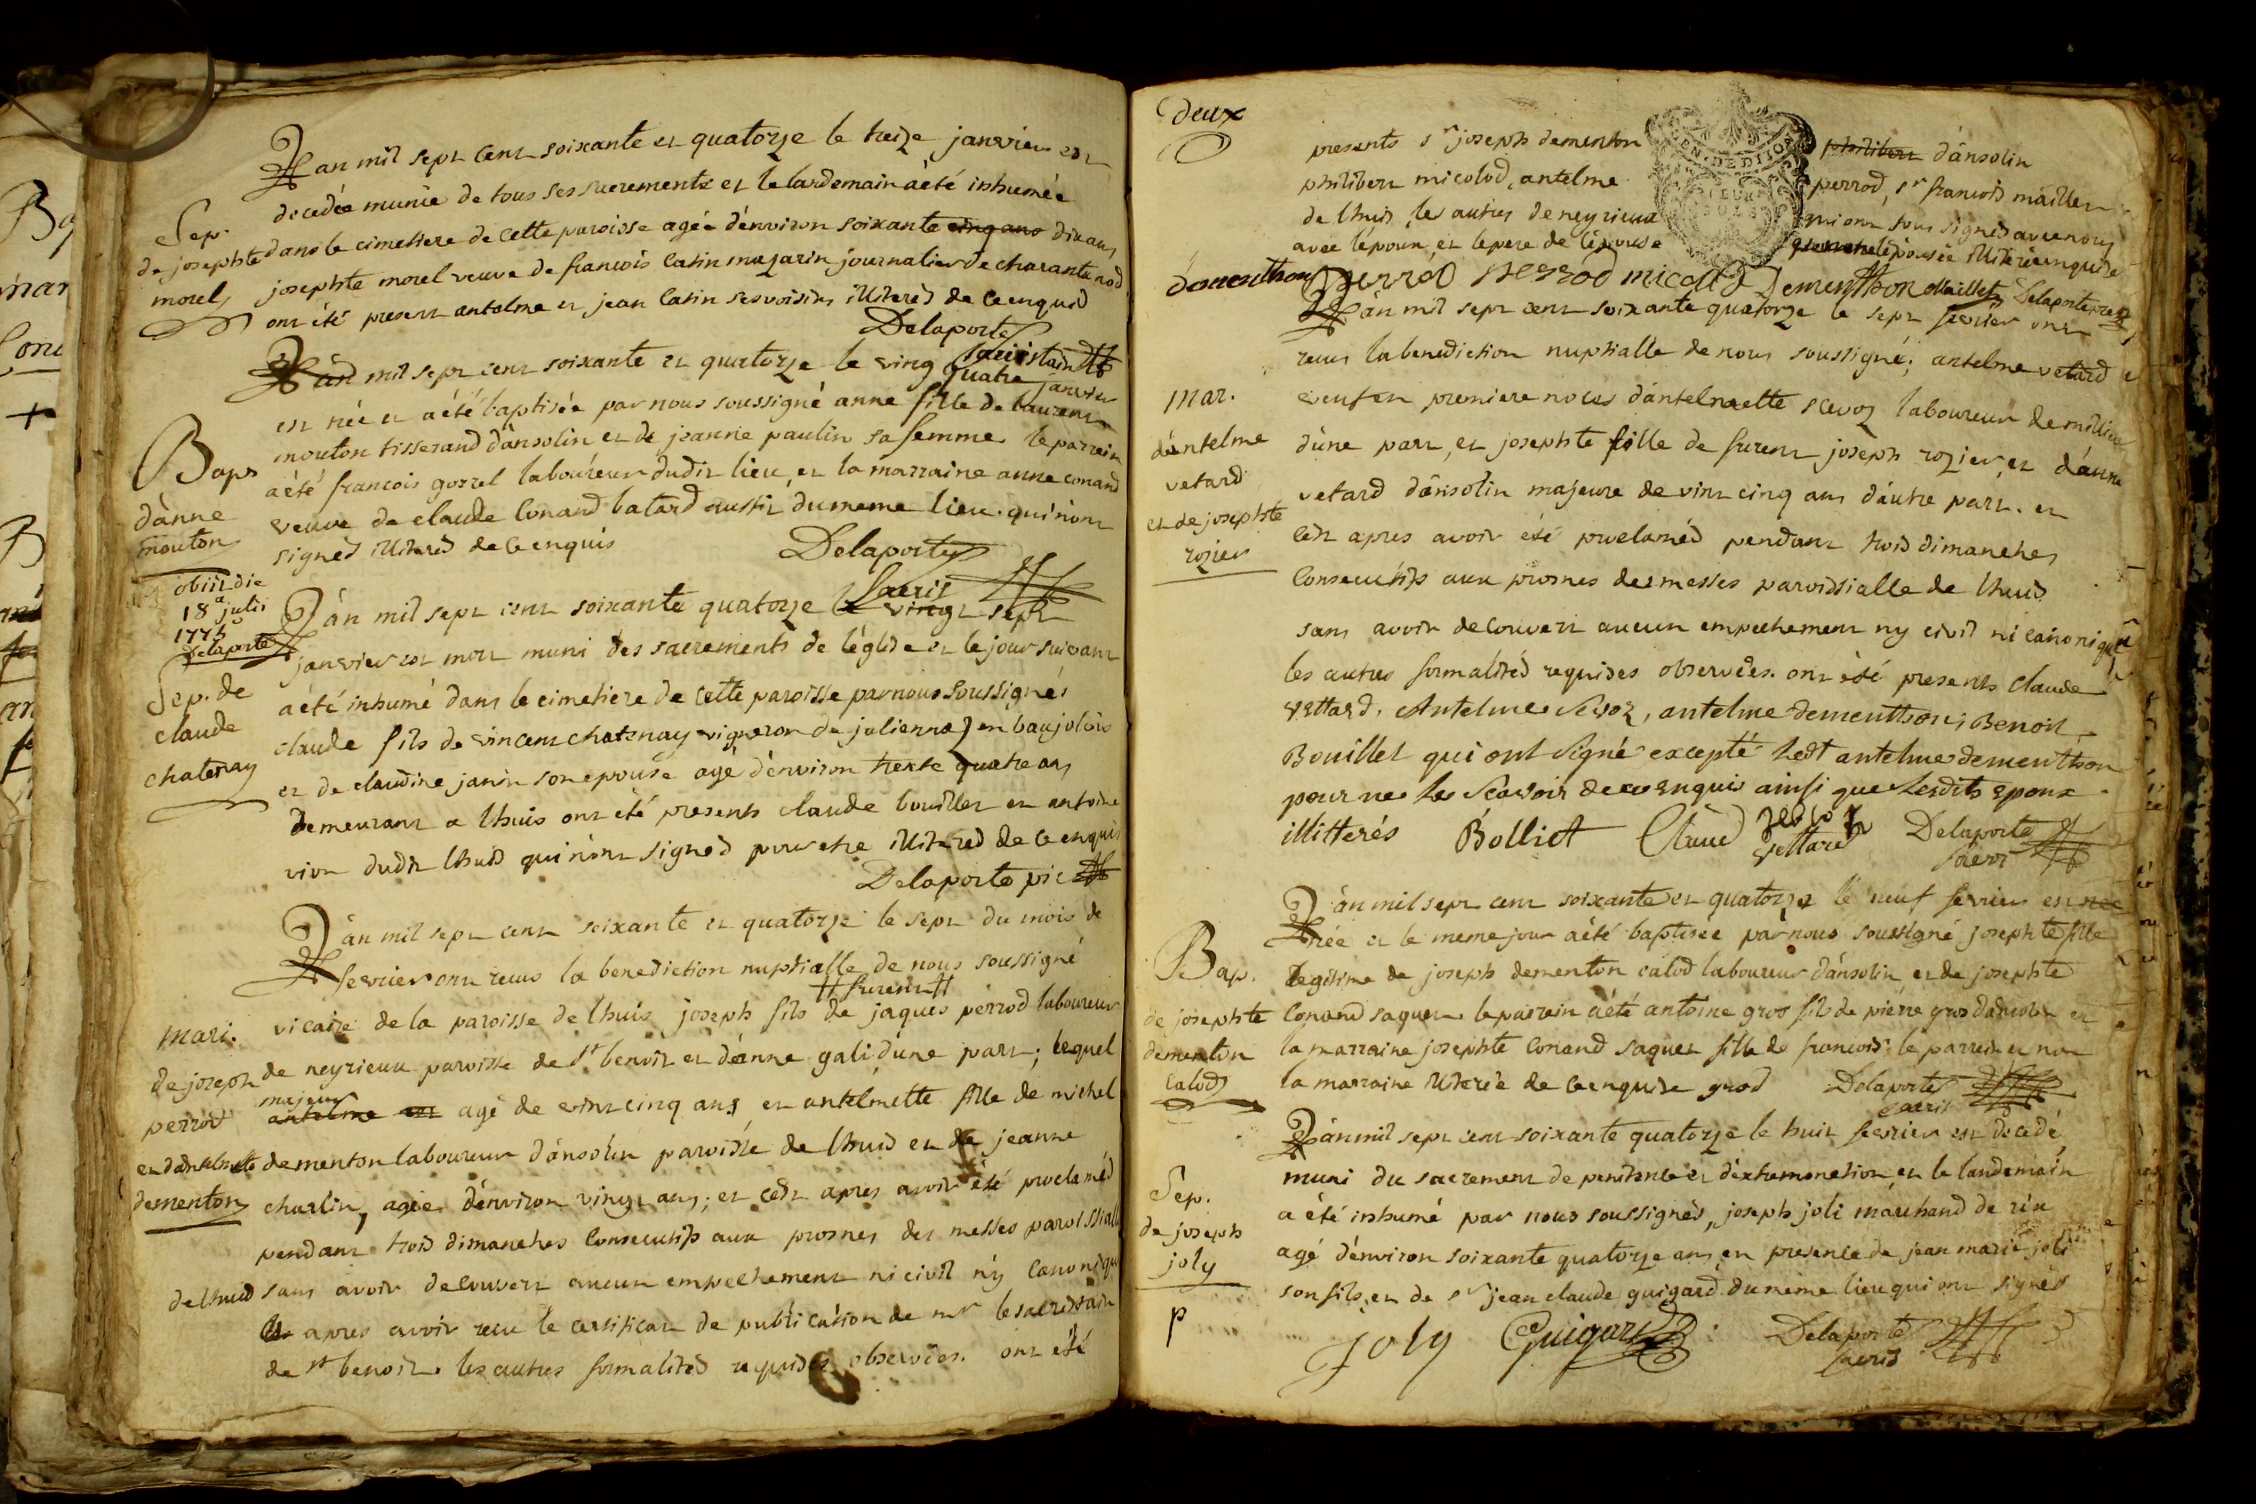 Sep.
de josephte
morel
L'an mil sept cent soixante et quatorze le treize janvier est
decedée munie de tous ses sacrements et le landemain a été inhumée
dans le cimetiere de cette paroisse agée d'environ soixante cinq ans dix ans
josephte morel veuve de francois catin mazarin journalier de charantonod
ont été present antelme et jean catin ses voisins illiterés de ce enquis
Delaporte
sacristain
Bap
d'anne
mouton
obiit die
18a julii
1775
Delaporte
L'an mil sept cent soixante et quatorze le vingt quatre janvier
est née et a été baptisée par nous soussigné anne fille de laurent
mouton tisserand d'ansolin et de jeanne paulin sa femme le parrein
a été francois gorrel laboureur dudit lieu et la marraine anne conand
veuve de claude Conand batard aussi du meme lieu qui n'ont
signés illiterés de ce enquis
Delaporte
sacris
Sep. de
claude
chatenay
L'an mil sept cent soixante quatorze le vingt sept
janvier est mort muni des sacrements de l'église et le jour suivant
a été inhumé dans le cimetiere de cette paroisse par nous soussignés
claude fils de vincent chatenay vigneron de juliennas en baujolois
et de claudine janin son epouse agé d'environ trente quatre ans
demeurant a lhuis ont été presents claude bouillet et antoine
dudit lhuis qui n'ont signés pour etre illiterés de ce enquis
Delaporte vic
mari.
de joseph
perrod
et d'antelmette
dementon
L'an mil sept cent soixante et quatorze le sept du mois de
fevrier ont recus la benediction nuptialle de nous soussigné
furent
vicaire de la paroisse de lhuis joseph fils de jaques perrod laboureur
de neyrieux paroisse de st benoit et d'anne gali d'une part; lequel
majeur
antelme est agé de vint cinq ans et antelmette fille de michel
dementon laboureur d'ansolin paroisse de lhuis et de jeanne
charlin, agée d'environ vingt ans; et cest apres avoir été proclamés
pendant trois dimanches consecutifs aux prosnes des messes paroissialle
de lhuis sans avoir decouvert aucun empechement ni civil n'y canonique
et apres avoir recu le certificat de publication de mr le sacristain
de st benoit. les autres formalités requises observées. ont été
deux
presents sr joseph dementon philibert d'ansolin
philibert micolod, antelme perrod, sr francois maillet
de lhuis, les autres de neyrieux qui ont tous signés avec nous
avec l'époux et le pere de l'epouse l'épousée illiterée enquise
EN. DE DIJON
dementhon perrod perrod micolod Dementhon Maillet Delaporte
mar.
d'antelme
vetard
et de josephte
rozier
L'an mil sept cent soixante quatorze le sept fevrier ont
recus la benediction nuptialle de nous soussigné; antelme vetard
veuf en premiere noces d'antelmette scevoz laboureur de millieu
d'une part, et josephte fille de furent joseph rozier, et d'anne
vetard d'ansolin majeure de vint cinq ans d'autre part. et
cest apres avoir été proclamés pendant trois dimanches
consecutifs aux prosnes des messes paroissialle de lhuis
sans avoir decouvert aucun empechement ny civil ni canonique
les autres formalités requises observées. ont été presents claude
vettard. Antelme Scevoz, antelme dementhon, Benoit
Bouillet qui ont signé excepté Ledt antelme dementhon
pour ne Le Scavoir de ce enquis ainsi que Lesdits Epoux
illitterés Bolliet Claud vettard Delaporte
sacris
Bap.
de josephte
dementon
calod
L'an mil sept cent soixante et quatorze le neuf fevrier est née
née et le meme jour a été baptisée par nous soussigné josephte fille
legitime de joseph dementon calod laboureur d'ansolin et de josephte
Conand saquet. le parrein a été antoine gros fils de pierre gros d'ansolin et
la marraine josephte conand saquet fille de francois le parrein et non
la marraine illiterée de ce enquise grod Delaporte
sacris
Sep.
de joseph
joly
p
L'an mil sept cent soixante quatorze le huit fevrier est decedé
muni du sacrement de penitence et d'extremonction et le landemain
a été inhumé par nous soussignés, joseph joli marchand de rix
agé d'environ soixante quatorze ans en presence de jean marie joli
son fils, et de sr jean claude guigard du meme lieu qui ont signés
joly Guigard Delaporte
sacris